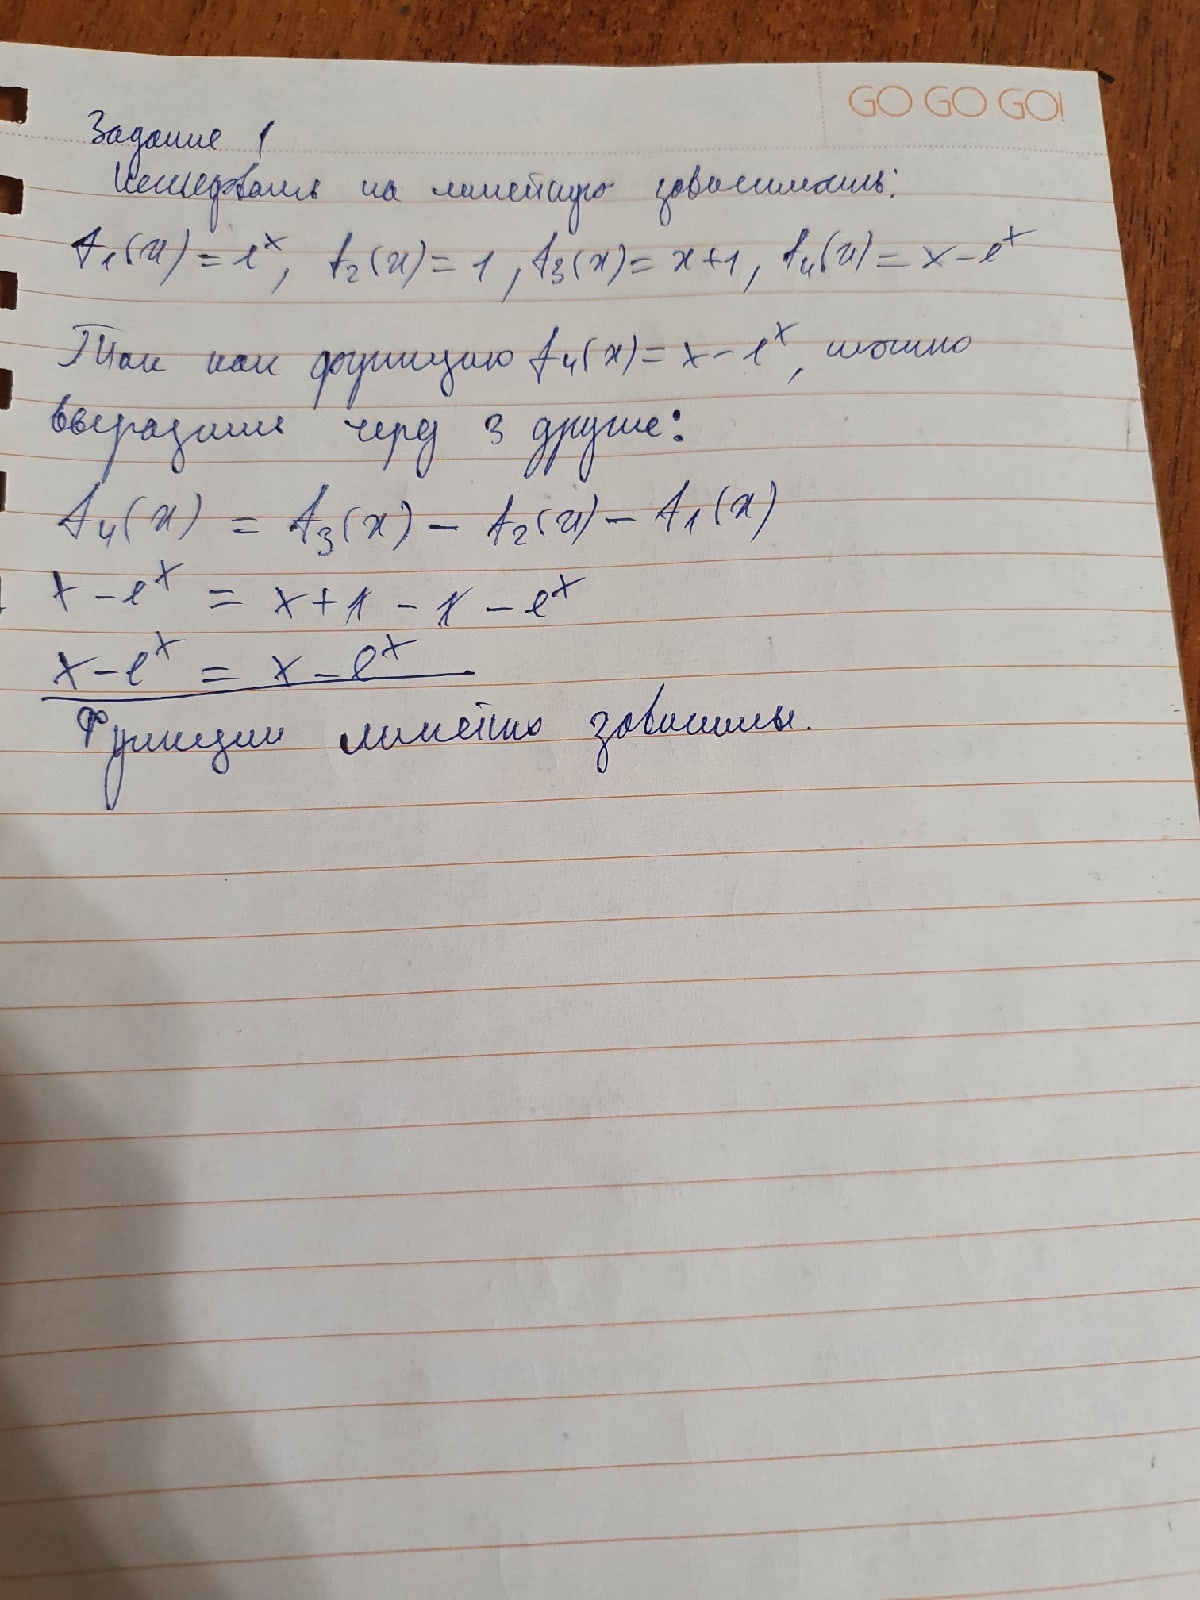 GO GO GO!
Задание 1
Исследовать на линейную зависимость:
f₁(x) = eˣ, f₂(x) = 1, f₃(x) = x+1, f₄(x) = x – eˣ
Так как функцию f₄(x) = x – eˣ, можно
выразить через 3 другие:
f₄(x) = f₃(x) – f₂(x) – f₁(x)
x – eˣ = x + 1 – 1 – eˣ
x – eˣ = x – eˣ
Функции линейно зависимы.